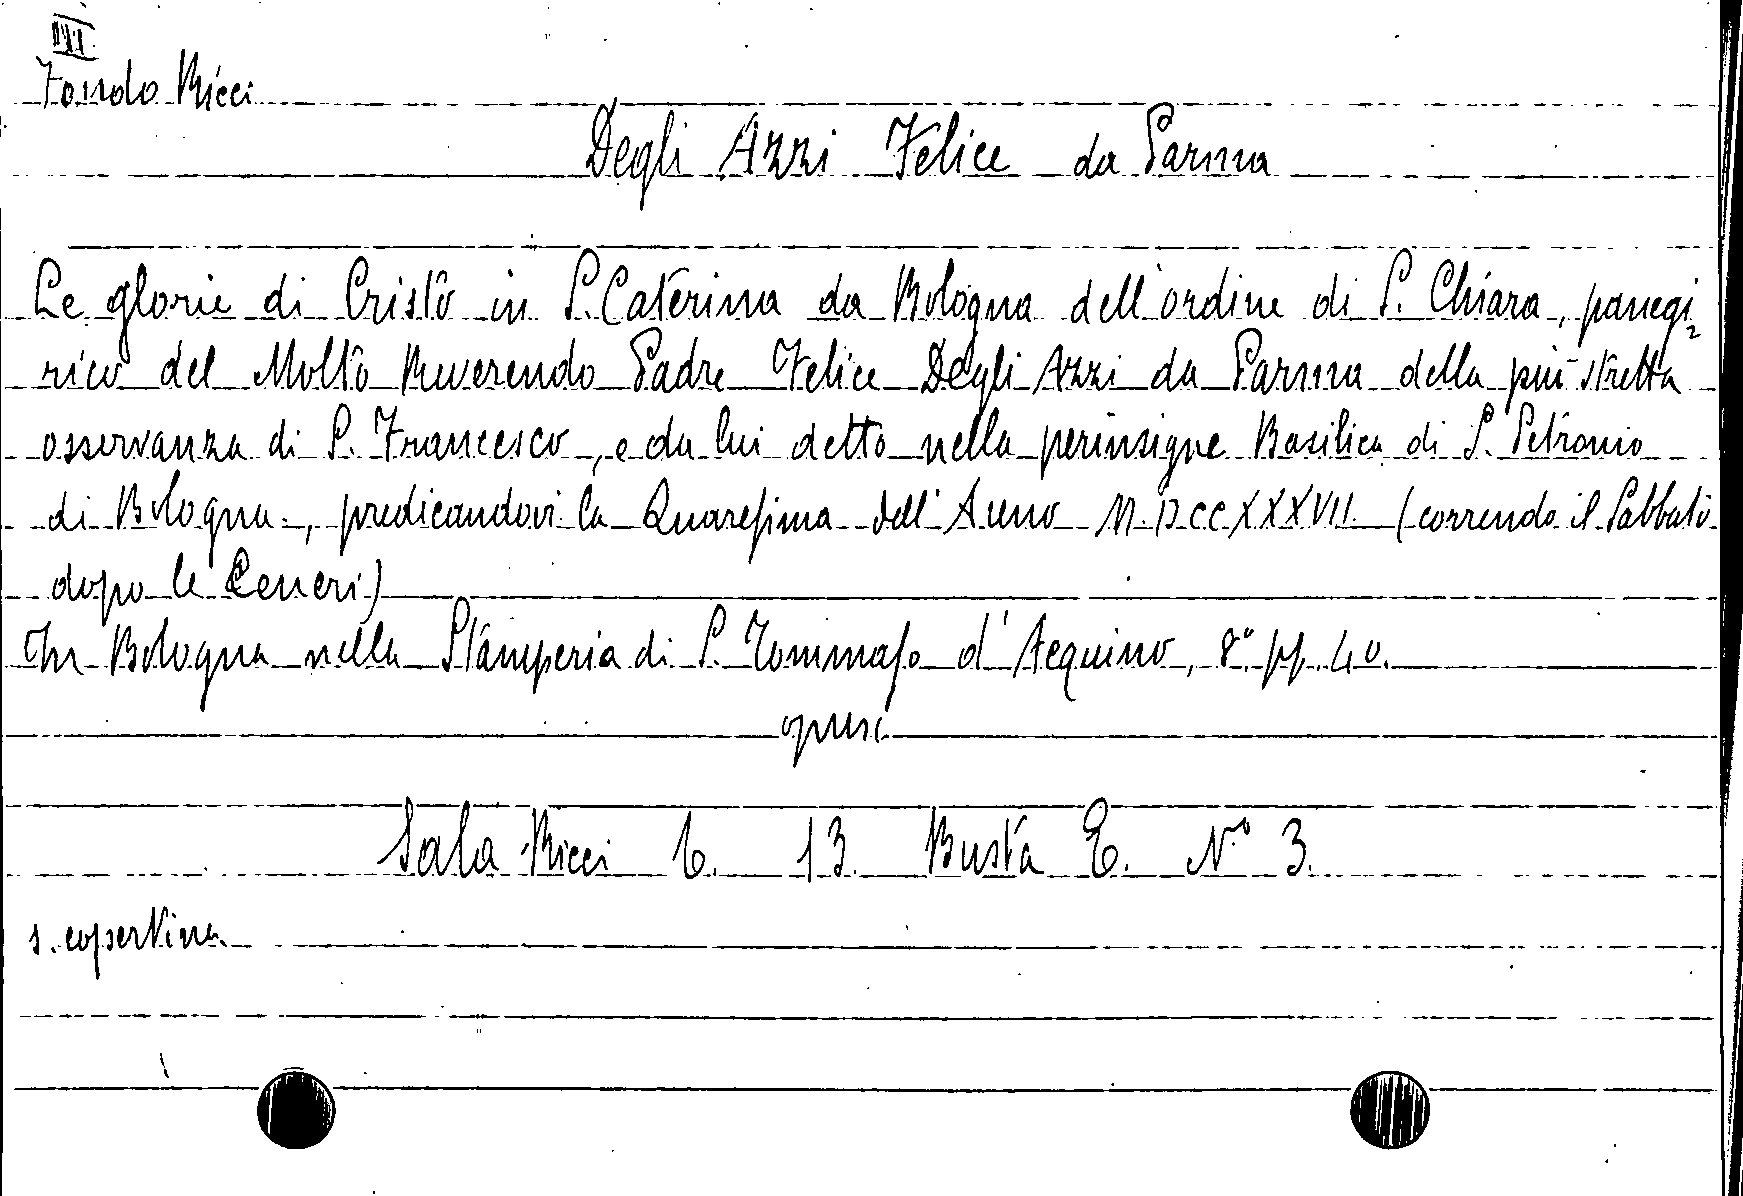 III
Fondo Ricci
Degli Azzi Felice da Parma
Le glorie di Cristo in S. Caterina da Bologna dell'ordine di S. Chiara, panegi
rico del Molto Reverendo Padre Felice Degli Azzi da Parma della più stretta
osservanza di S. Francesco, e da lui detto nella perinsigne Basilica di S. Petronio
di Bologna, predicandovi la Quaresima dell'Anno M.DCCXXXVII (correndo il Sabbato
dopo le Ceneri)
In Bologna nella Stamperia di S. Tommaso d'Acquino, 8° pp. 40.
opusc
Sala Ricci C. 13 Busta E. N° 3.
s. copertina